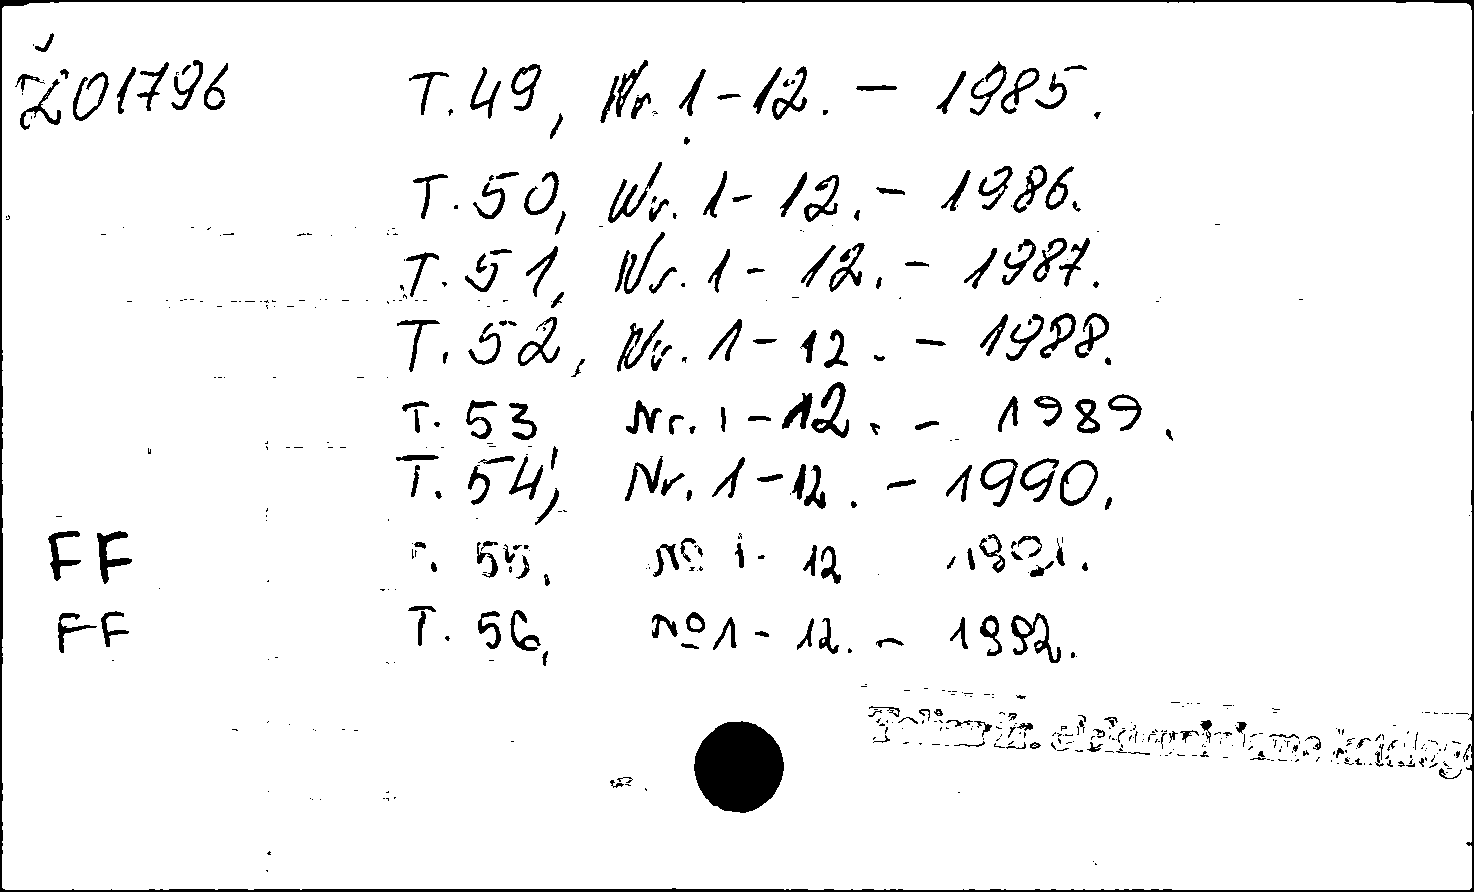 Ž01796 T. 49, Nr. 1-12. - 1985.
T. 50, Nr. 1-12. - 1986.
T. 51, Nr. 1-12. - 1987.
T. 52, Nr. 1-12. - 1988.
T. 53, Nr. 1-12. - 1989.
T. 54, Nr. 1-12. - 1990.
FF T. 55, № 1-12 1991.
FF T. 56, № 1-12. - 1992.
Toliau žr. elektroniniame kataloge